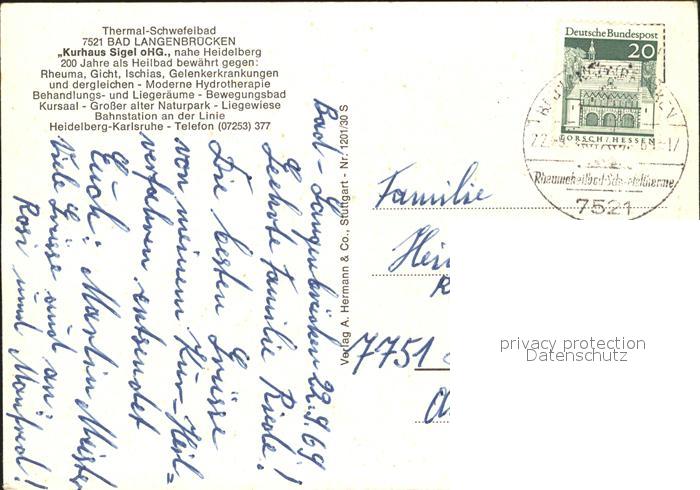 Thermal-Schwefelbad
7521 BAD LANGENBRÜCKEN
„Kurhaus Sigel oHG., nahe Heidelberg
200 Jahre als Heilbad bewährt gegen:
Rheuma, Gicht, Ischias, Gelenkerkrankungen
und dergleichen - Moderne Hydrotherapie
Behandlungs- und Liegeräume - Bewegungsbad
Kursaal - Großer alter Naturpark - Liegewiese
Bahnstation an der Linie
Heidelberg-Karlsruhe - Telefon (07253) 377
Bad-Langenbrücken 22.9.69
Geehrte Familie Riede!
Die besten Grüsse
von meinem Kur-Heil=
verfahren entsendet
Euch: Martin Meister
Viele Grüsse auch an
Rosi und Manfred!
Verlag A. Hermann & Co., Stuttgart - Nr. 1201/30 S
Deutsche Bundespost
20
LORSCH/HESSEN
7521
Familie
7751
privacy protection
Datenschutz